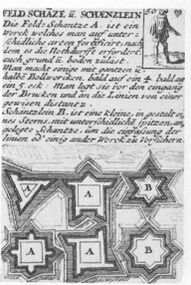 FELD SCHÄZE u. SCHAENZLEIN
50
Die Feld-Schantze A ist ein
werck welches man auf unter=
schidliche arten fortificirt, nach
dem es die Nothdurfft erfordert
auch grund u. boden zulast.
Man macht einige mit gantzen u.
halbē Bollwercken, bald auf ein 4 bald auf
ein 5 eck. Man legt sie vor den eingang
der Brucken und an die Linien von einer
gewisen distantz.
Schäntzlein B. ist eine kleine, in gestalt ei=
nes Sterns, mit unterschidliche spitzen, an=
gelegte Schantze, üm die einfassung der
linien od. einig ander Werck zu Versichern.
A
A
B
A
A
B